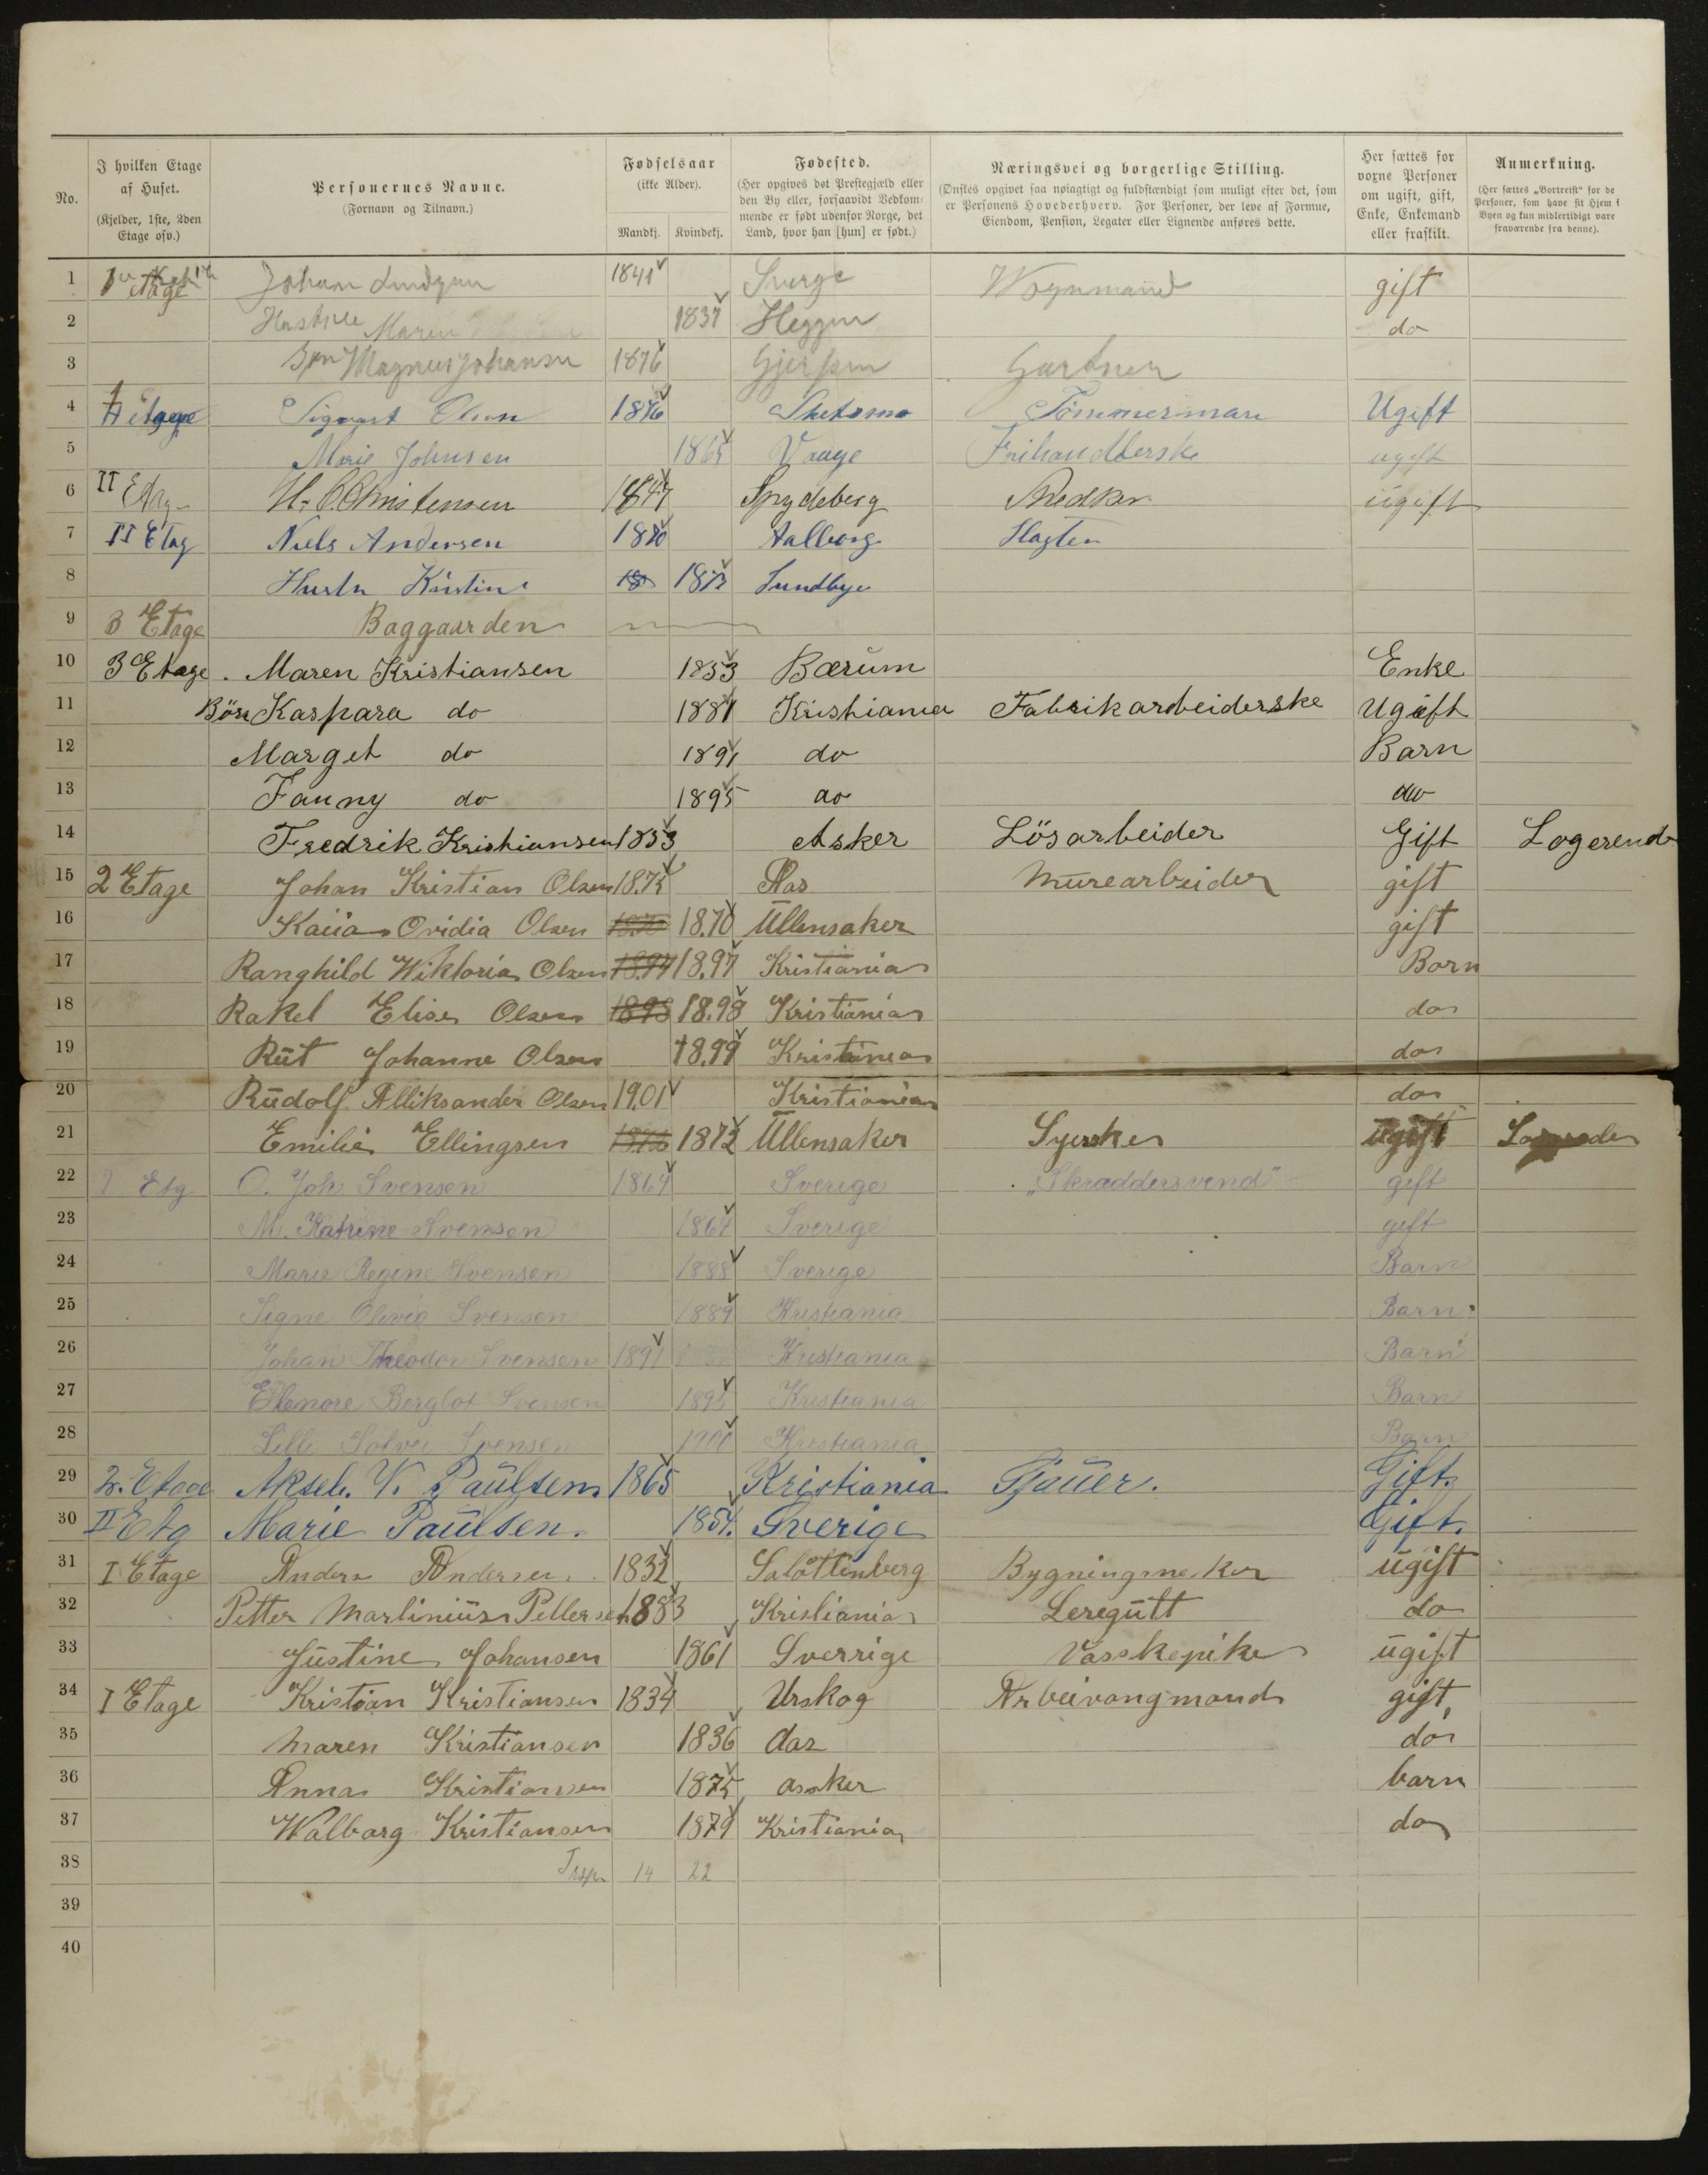 No.
I hvilken Etage af Huset. (Kjelder, 1ste, 2den Etage osv.)
Personernes Navne. (Fornavn og Tilnavn.)
Fødselsaar (ikke Alder). Mandkj. Kvindekj.
Fødested. (Her opgives det Prestegjæld eller den By eller, forsaavidt Vedkommende er født udenfor Norge, det Land, hvor han [hun] er født.)
Næringsvei og borgerlige Stilling. (Ønskes opgivet saa nøiagtigt og fuldstændigt som muligt efter det, som er Personens Hovederhverv. For Personer, der leve af Formue, Eiendom, Pension, Legater eller Lignende anføres dette.
Her sættes for voxne Personer om ugift, gift, Enke, Enkemand eller fraskilt.
Anmerkning. (Her sættes „Bortreist“ for de Personer, som have sit Hjem i Byen og kun midlertidigt vare fraværende fra denne).
1 Etage Johan Lundgren 1841 Sverge Vognmand gift
2 Hustrue Maren 1837 Heggen do
3 Søn Magnus Johansen 1876 Gjerpen Gartner
4 Etage Sigvart Olsen 1876 Skedsmo Tömmerman Ugift
5 Marie Johnsen 1865 Vaage Frihandlerske ugift
6 II Etag H. C. Christensen 1847 Spydeberg Snedker ugift
7 II Etag Niels Andersen 1870 Aalborg
8 Hustru Kristine 1873 Sundbye
9 3 Etage Baggaarden
10 3 Etage Maren Kristiansen 1853 Bærum Enke
11 Börn Kaspara do 1881 Kristiania Fabrikarbeiderske Ugift
12 Marget do 1891 do Barn
13 Fanny do 1895 do do
14 Fredrik Kristiansen 1853 Asker Lösarbeider Gift Logerende
15 2 Etage Johan Kristian Olsen 18.75 Aas Murearbeider gift
16 Kaiia Ovidia Olsen 18.70 Ullensaker gift
17 Ranghild Wiktoria Olsen 1897 18.97 Kristiania Born
18 Rakel Elise Olsen 1898 18.98 Kristiania do
19 Rut Johanne Olsen 18.99 Kristiania do
20 Rudolf Alliksander Olsen 19.01 Kristiania do
21 Emilie Ellingsen 1872 Ullensaker Syerske ugift
22 Etg O. Joh Svensen 1864 Sverige „Skræddersvend“ gift
23 M. Katrine Svensen 1864 Sverige gift
24 Marie Regine Svensen 1888 Sverige Barn
25 Signe Olivia Svensen 1889 Kristiania Barn
26 Johan Theodor Svensen 1891 Kristiania Barn
27 Elenore Borglot Svensen 1895 Kristiania Barn
28 Lilli Solvei Svensen 1900 Kristiania Barn
29 2. Etage Aksel. V. Paulsen 1865 Kristiania Gift.
30 II Etg Marie Paulsen. 1854. Sverige Gift.
31 I Etage Anders Andersen 1832 Bygningsnekker ugift
32 Petter Martinius Pettersen 1883 Kristiania Leregutt do
33 Justine Johansen 1861 Sverrige Vasskepike ugift
34 I Etage Kristian Kristiansen 1834 Urskog Arbeivongmand gift
35 Maren Kristiansen 1836 Aas do
36 Anna Kristiansen 1875 Assker barn
37 Walborg Kristiansen 1879 Kristiania do
38 14 22
39
40